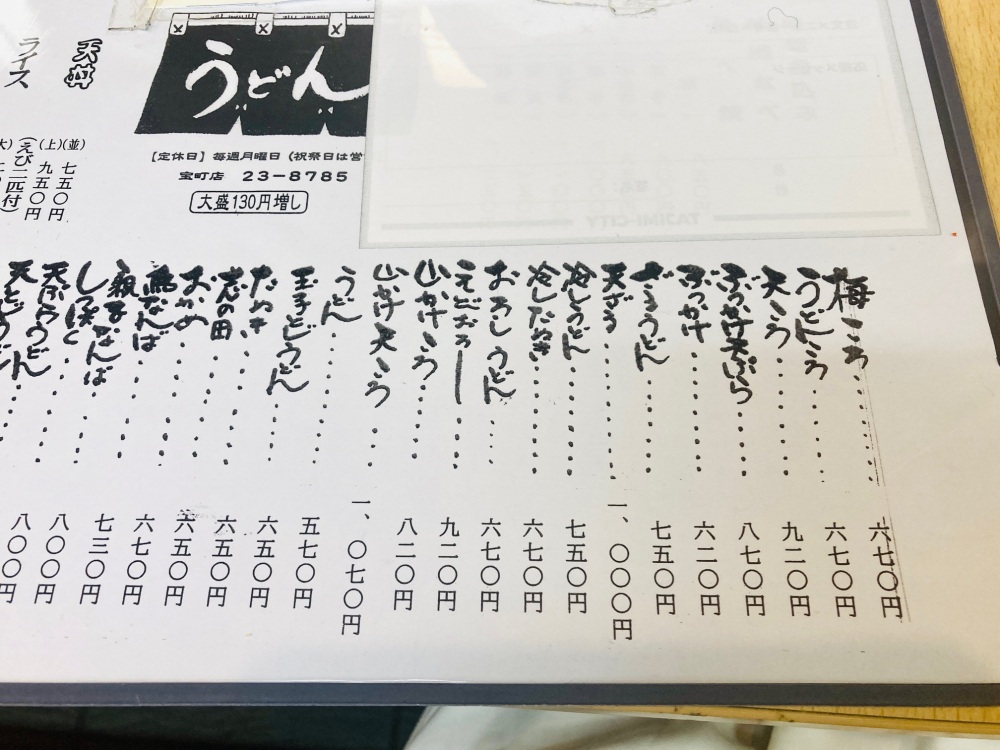 うどん
【定休日】毎週月曜日（祝祭日は営
宝町店 23-8785
大盛130円増し
天丼
(並) 七五〇円
(上) 九五〇円
(えび二匹付)
ライス
TAJIMI-CITY
梅ころ………六七〇円
うどんころ………六七〇円
天ころ………九二〇円
ぶっかけ天ぷら………八七〇円
ぶっかけ………六二〇円
ざるうどん………七五〇円
天ざる………一、〇〇〇円
冷しうどん………七五〇円
冷したぬき………六七〇円
おろしうどん………六七〇円
えびおろし………九二〇円
山かけころ………八二〇円
山かけ天ころ………一、〇七〇円
うどん………五七〇円
玉子とじうどん………六五〇円
たぬき………六五〇円
志の田………六五〇円
おかめ………六七〇円
鳥なんば………七三〇円
親子なんば………八〇〇円
しっぽく………八〇〇円
天ぷらうどん………
天とじうどん………